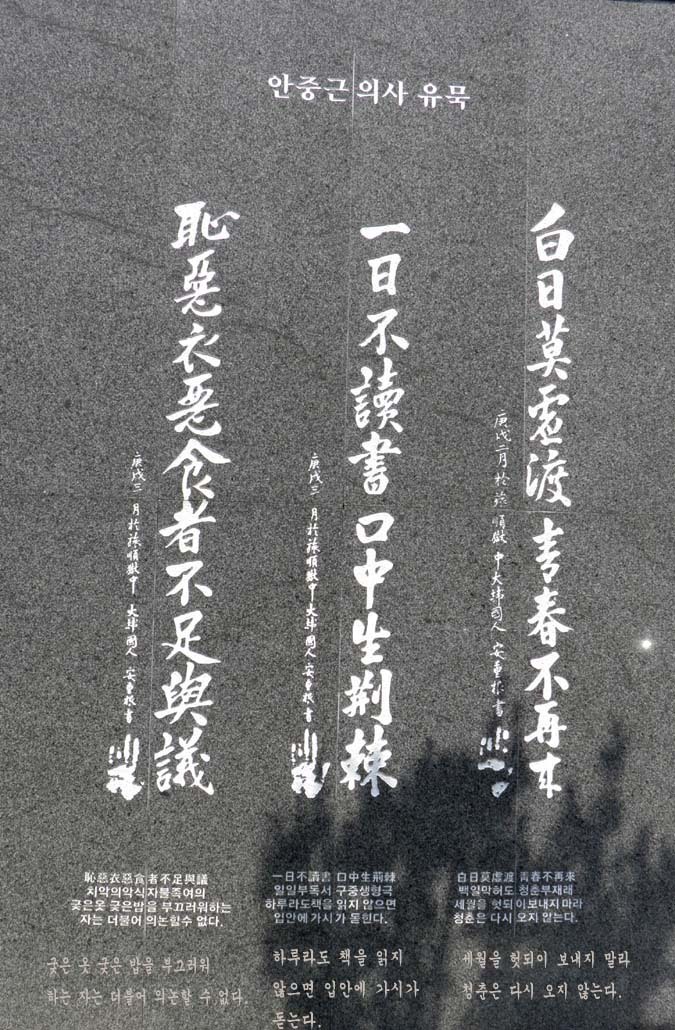 안중근 의사 유묵
白日莫虛渡 青春不再來
庚戌二月 於旅順獄中 大韓國人 安重根書
一日不讀書 口中生荊棘
庚戌三月 於旅順獄中 大韓國人 安重根書
恥惡衣惡食者不足與議
庚戌三月 於旅順獄中 大韓國人 安重根書
恥惡衣惡食者不足與議
치악의악식자불족여의
궂은옷 궂은밥을 부끄러워하는
자는 더불어 의논할수 없다.
一日不讀書 口中生荊棘
일일부독서 구중생형극
하루라도책을 읽지 않으면
입안에 가시가 돋힌다.
白日莫虛渡 青春不再來
백일막허도 청춘부재래
세월을 헛되이보내지마라
청춘은 다시 오지 안는다.
궂은 옷 궂은 밥을 부끄러워
하는 자는 더불어 의논할 수 없다.
하루라도 책을 읽지
않으면 입안에 가시가
돋는다.
세월을 헛되이 보내지 말라
청춘은 다시 오지 않는다.